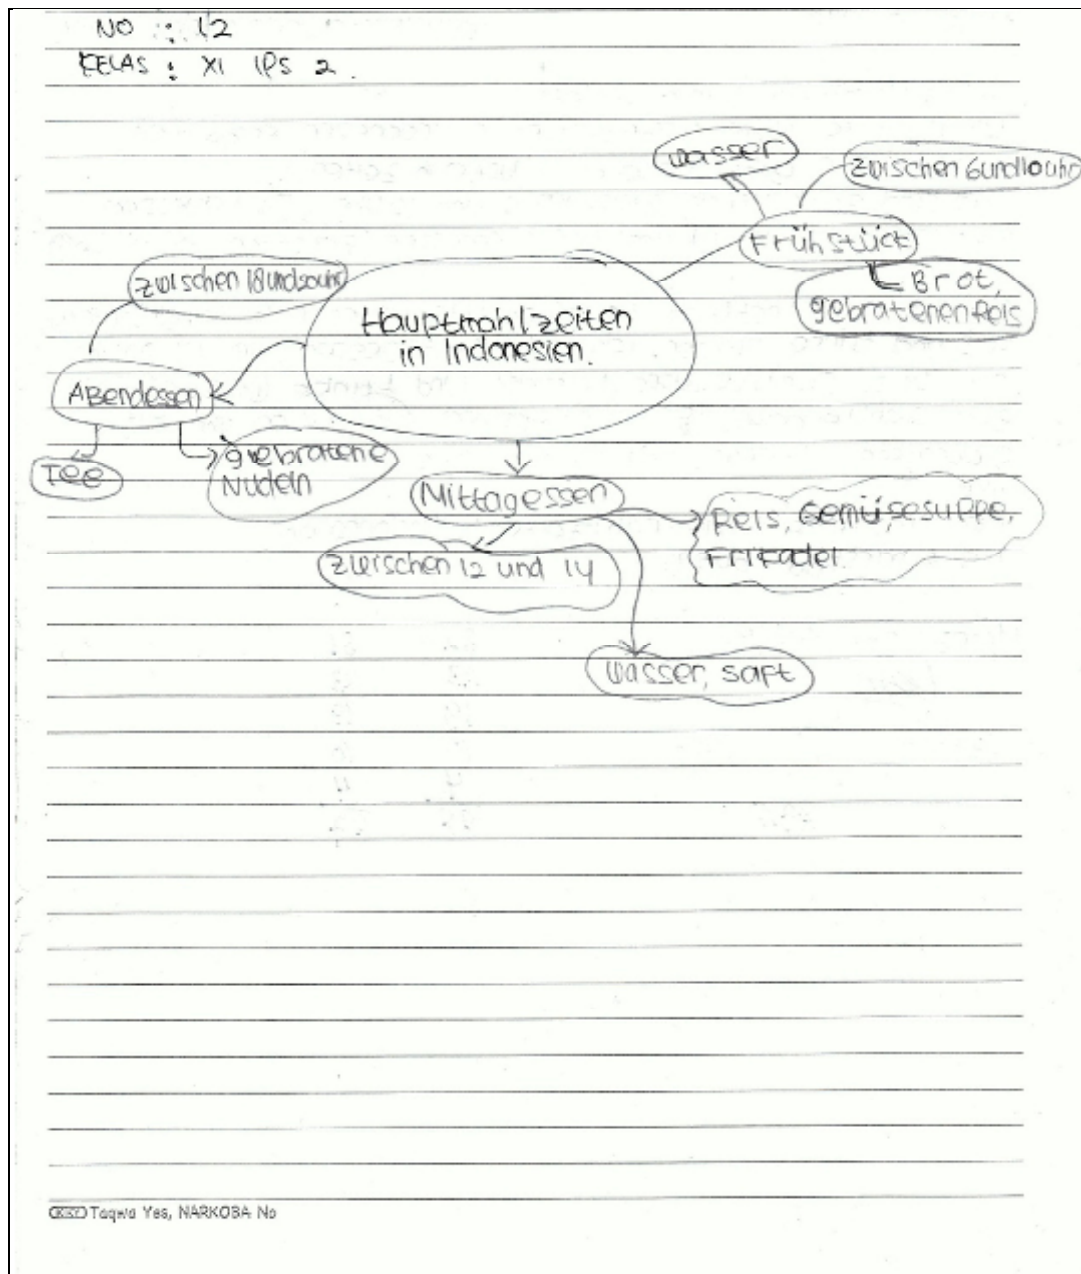 NO : 12
KELAS : XI IPS 2.
wasser
zwischen 6 und 10 uhr
Frühstück
Brot,
gebratenen Reis
zwischen 18 und 20 uhr
Hauptmahlzeiten
in Indonesien.
Abendessen
Tee
gebratene
Nudeln
Mittagessen
Reis, Gemüsesuppe,
Frikadel
zwischen 12 und 14
wasser, saft
Taqwa Yes, NARKOBA No